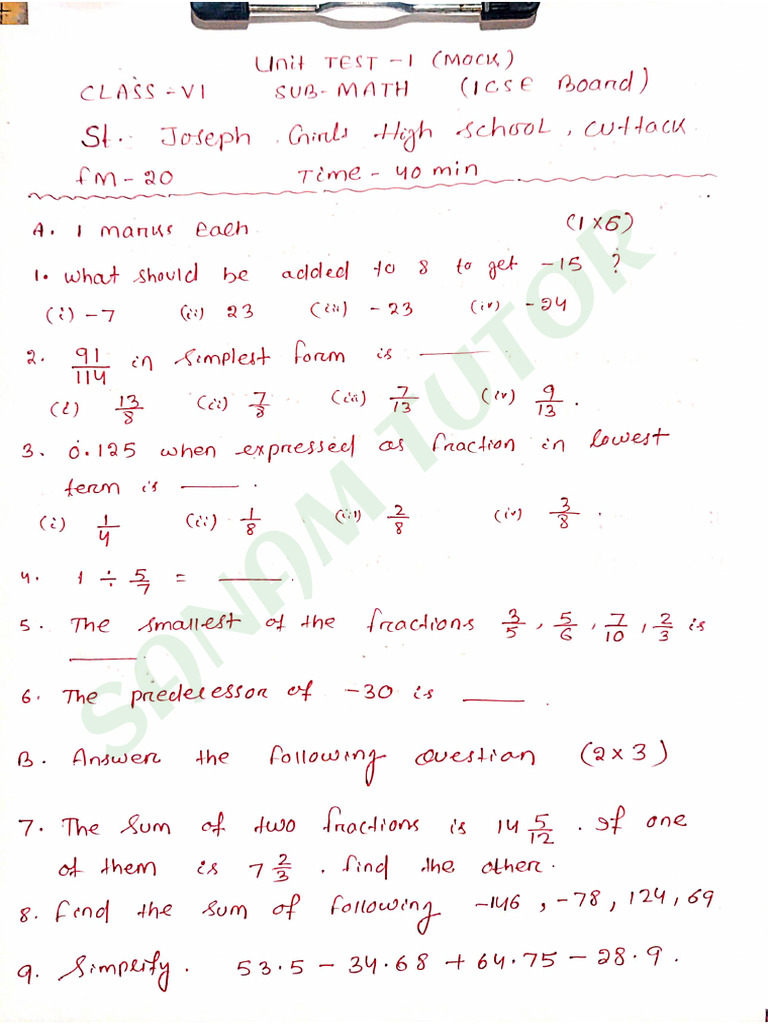 Unit TEST -1 (MOCK)
CLASS-VI SUB-MATH (ICSE Board)
St. Joseph Girls High School, Cuttack
FM-20 Time-40 min
A. 1 marks Each (1x6)
1. What should be added to 8 to get -15 ?
(i) -7 (ii) 23 (iii) -23 (iv) -24
2. 91/114 in simplest form is ____
(i) 13/8 (ii) 7/8 (iii) 7/13 (iv) 9/13 .
3. 0.125 when expressed as fraction in lowest
term is ____ .
(i) 1/4 (ii) 1/8 (iii) 2/8 (iv) 3/8 .
4. 1 ÷ 5/7 = ____ .
5. The smallest of the fractions 3/5 , 5/6 , 7/10 , 2/3 is
____
6. The predecessor of -30 is ____
B. Answer the following Question (2x3)
7. The sum of two fractions is 14 5/12 . If one
of them is 7 2/3 . find the other.
8. Find the sum of following -146 , -78 , 124 , 69
9. Simplify. 53.5 - 34.68 + 64.75 - 28.9 .
SANAM TUTOR